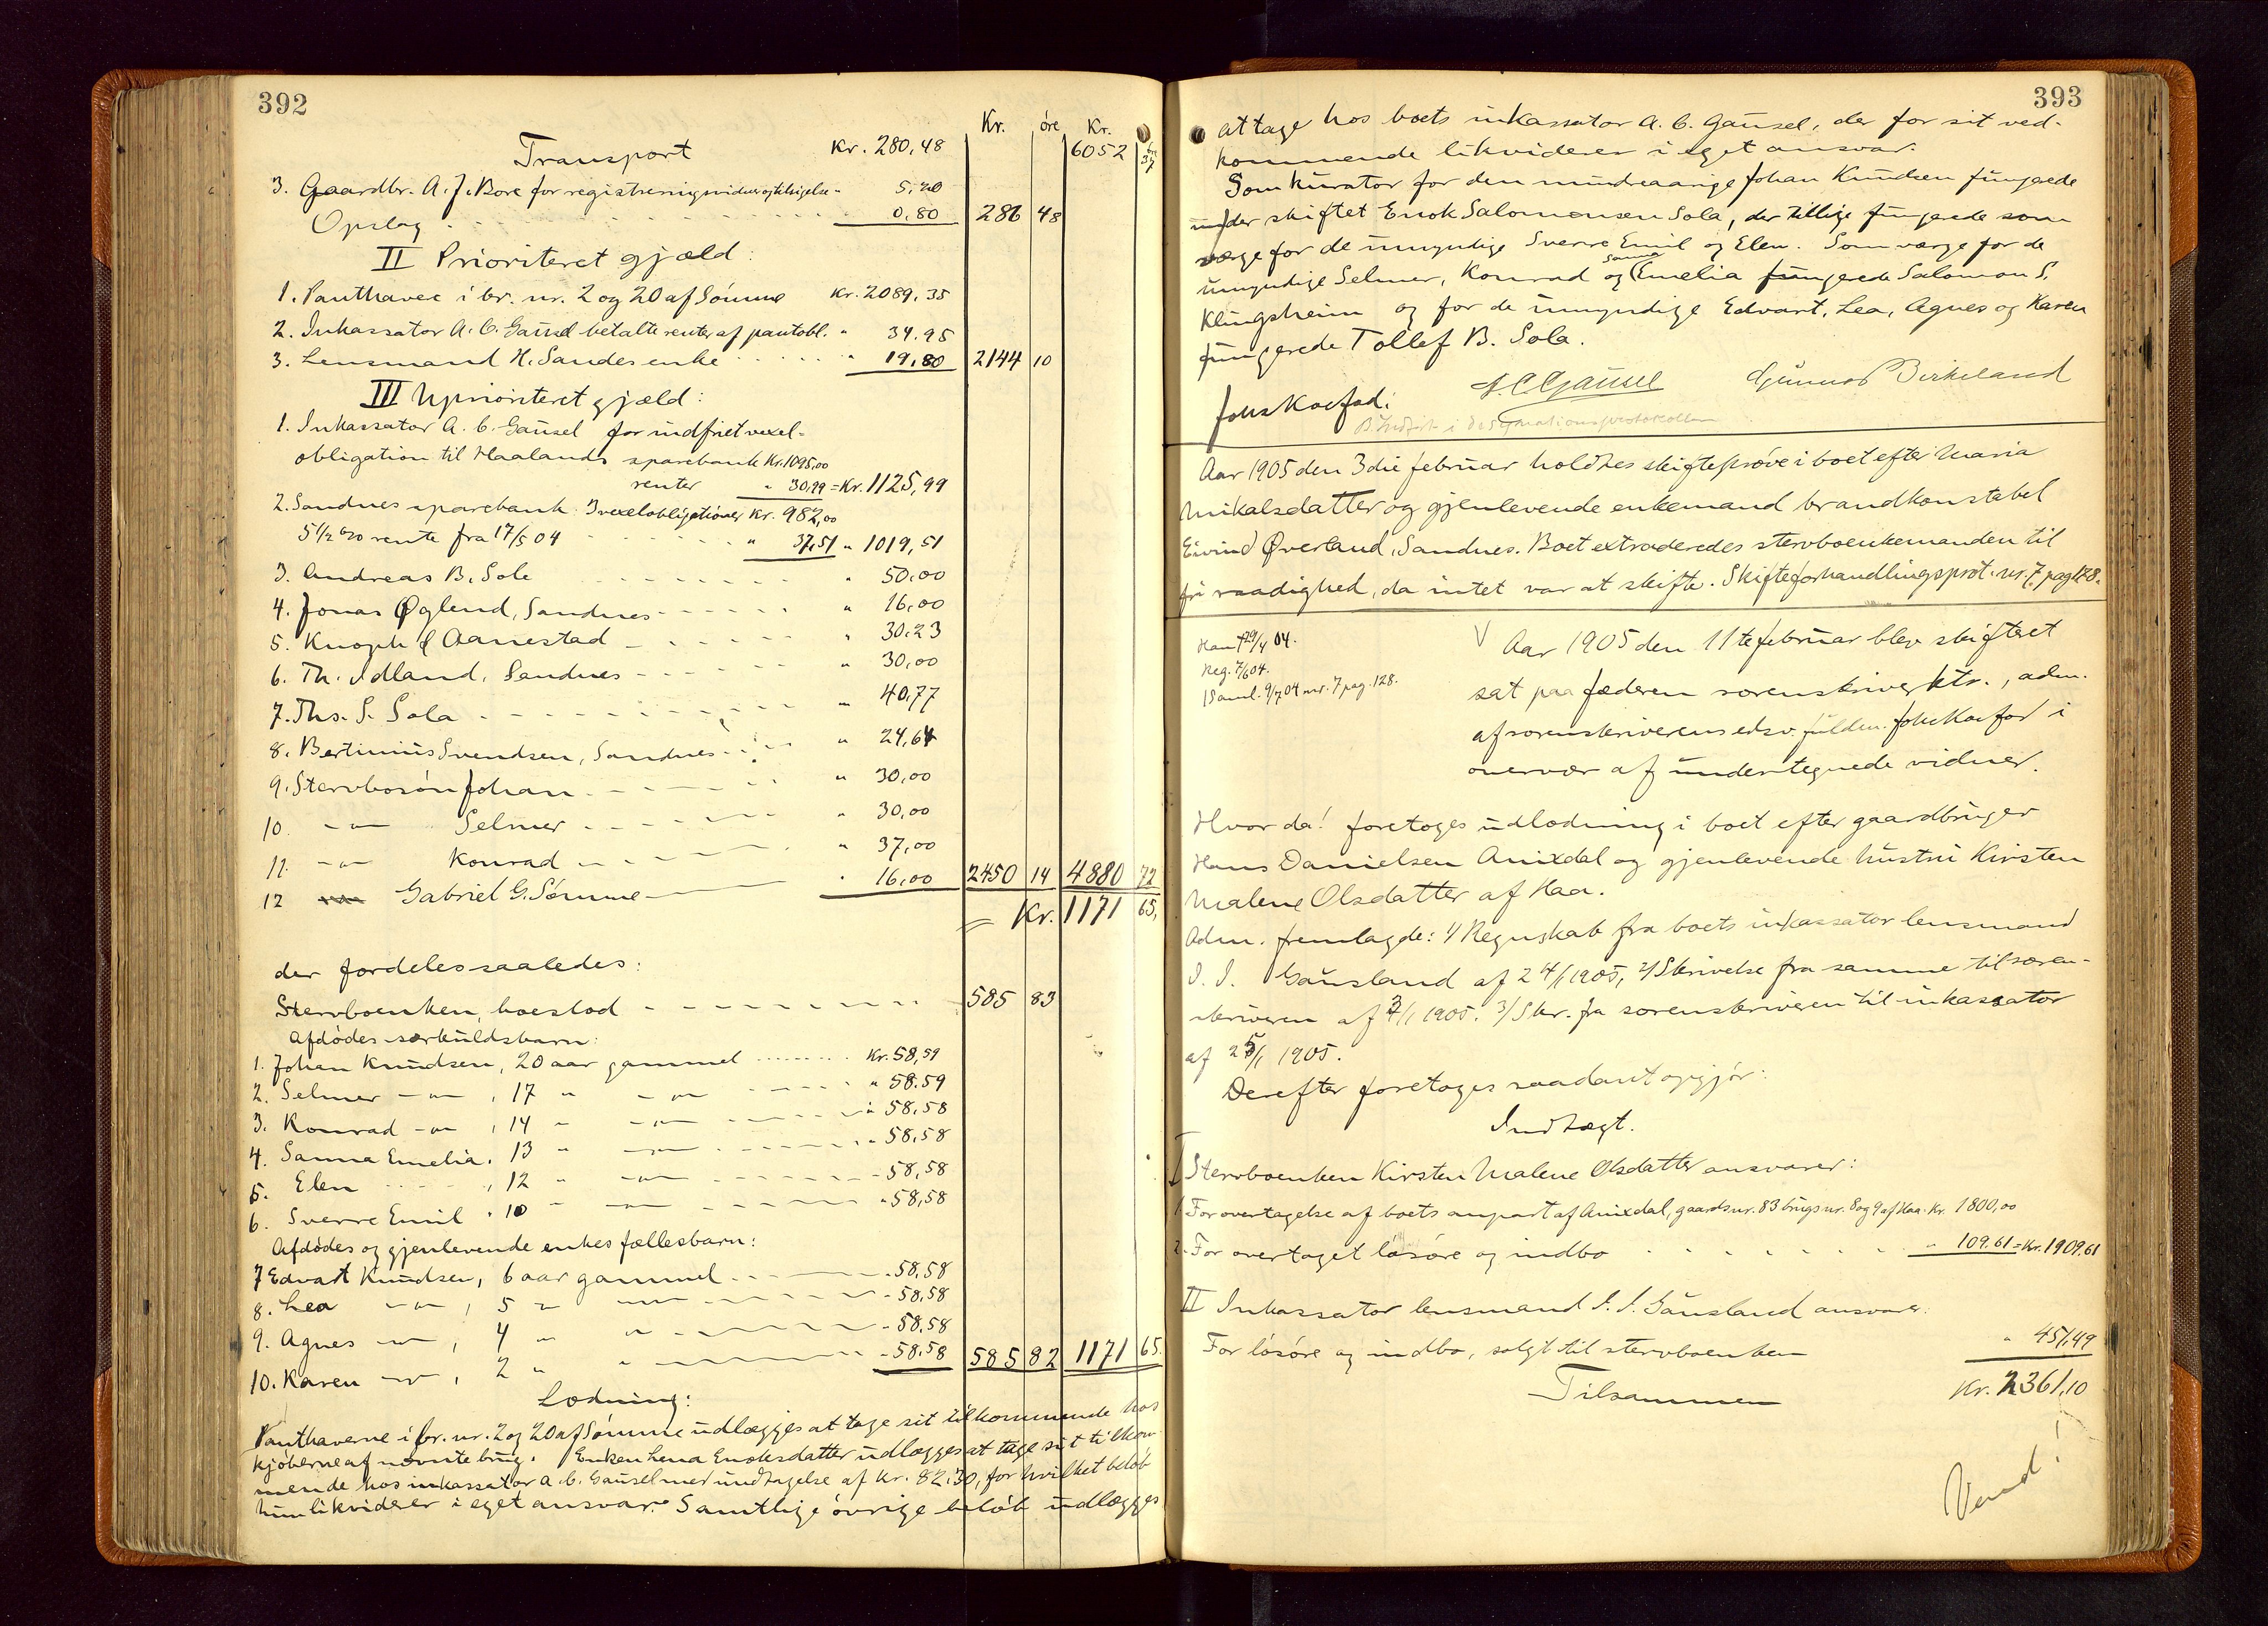 392
Kr. øre Kr. øre
Transport Kr. 280,48 6052 37
3. Gaardbr. A. J. Bore for registreringsvidner og tilsigelse - 5,20
Opslag 0,80 286 48
II Prioriteret gjæld:
1. Panthaver i br. nr. 2 og 20 af Sømme Kr. 2089,35
2. Inkassator A. C. Gausel betalte renter af pantobl. " 34.95
3. Lensmand H. Sandes enke " 19,80 2144 10
III Uprioriteret gjæld:
1. Inkassator A. C. Gausel for indfriet vexel-
obligation til Haalands sparebank Kr. 1095,00
renter " 30,99 = Kr. 1125,99
2. Sandnes sparebank 3 vexelobligationer Kr. 982,00
5 1/2 % rente fra 17/5 04 " 37,51 " 1019,51
3. Andreas B. Sole " 50,00
4. Jonas Øglend, Sandnes " 16,00
5. Knoph & Aanestad " 30,23
6. Th. Idland, Sandnes " 30,00
7. Ths. S. Sola " 40,77
8. Bertinius Svendsen, Sandnes " 24,64
9. Stervbosøn Johan " 30,00
10. -"- Selmer " 30,00
11. -"- Konrad " 37,00
12 Gabriel G. Sømme " 16,00 2450 14 4880 72
= Kr. 1171 65,
der fordeles saaledes:
Stervboenken, boeslod 585 83
Afdødes særkuldsbarn:
1. Johan Knudsen, 20 aar gammel Kr. 58,59
2. Selmer -"- , 17 " -"- " 58.59
3. Konrad -"- , 14 " -"- " 58,58
4. Sanna Emelia, 13 " -"- " 58,58
5. Elen , 12 " -"- " 58,58
6. Sverre Emil , 10 " -"- " 58,58
Afdødes og gjenlevende enkes fællesbarn:
7 Edvart Knudsen, 6 aar gammel " 58,58
8. Lea -"- , 5 " -"- " 58,58
9. Agnes -"- , 4 " " " 58,58
10. Karen -"- , 2 " " " 58,58 585 82 1171 65.
Lodning:
Panthaverne i br. nr. 2 og 20 af Sømme udlægges at tage sit tilkommende hos
kjøberne af nævnte brug. Enken Lena Enoksdatter udlægges at tage sit tilkom
mende hos inkassator A. C. Gausel med undtagelse af Kr. 82,30, for hvilket beløb
hun likviderer i eget ansvar. Samtlige øvrige beløb udlægges
393
at tage hos boets inkassator A. C. Gausel, der for sit ved-
kommende likviderer i eget ansvar.
Som kurator for den mindreaarige Johan Knudsen fungerede
under skiftet Enok Salomonsen Sola, der tillige fungerede som
værge for de umyndige Sverre Emil og Elen. Som værge for de
umyndige Selmer, Konrad og Sanna Emelia fungerede Salomon S.
Klingsheim og for de umyndige Edvart, Lea, Agnes og Karen
fungerede Tollef B. Sola.
Johs Koefod. A. C. Gausel Gunnar Birkeland
Indført i designationsprotokollen
Aar 1905 den 3die februar holdtes skifteprøve i boet efter Maria
Mikalsdatter og gjenlevende enkemand brandkonstabel
Eivind Øverland, Sandnes. Boet extraderedes stervboenkemanden til
fri raadighed, da intet var at skifte. Skifteforhandlingsprot. nr. 7, pag 178.
Ham † 29/4 04.
Reg. 7/6 04.
1 Saml. 9/7 04 nr. 7 pag. 128.
Aar 1905 den 11te februar blev skifteret
sat paa Jæderen sorenskriverktr., adm.
af sorenskriverens edsv. fuldm. Johs Koefod i
overvær af undertegnede vidner.
Hvor da! foretoges udlodning i boet efter gaardbruger
Hans Danielsen Anixdal og gjenlevende hustru Kirsten
Malene Olsdatter af Haa.
Adm. fremlagde: 1/ Regnskab fra boets inkassator lensmand
I. I. Gausland af 24/1 1905, 2/ Skrivelse fra samme til soren-
skriveren af 3/1 1905. 3/ Skr. fra sorenskriveren til inkassator
af 25/1 1905.
Derefter foretoges saadant opgjør:
Indtægt.
I Stervboenken Kirsten Malene Olsdatter ansvarer:
1. For overtagelse af boets anpart af Anixdal, gaards nr. 83 brugs nr. 8 og 9 af Haa. Kr. 1800,00
2. For overtaget løsøre og indbo " 109.61 = Kr. 1909.61
II Inkassator lensmand I. I. Gausland ansvarer:
For løsøre og indbo, solgt til stervboenken " 451,49
Tilsammen Kr. 2361,10
Vend!